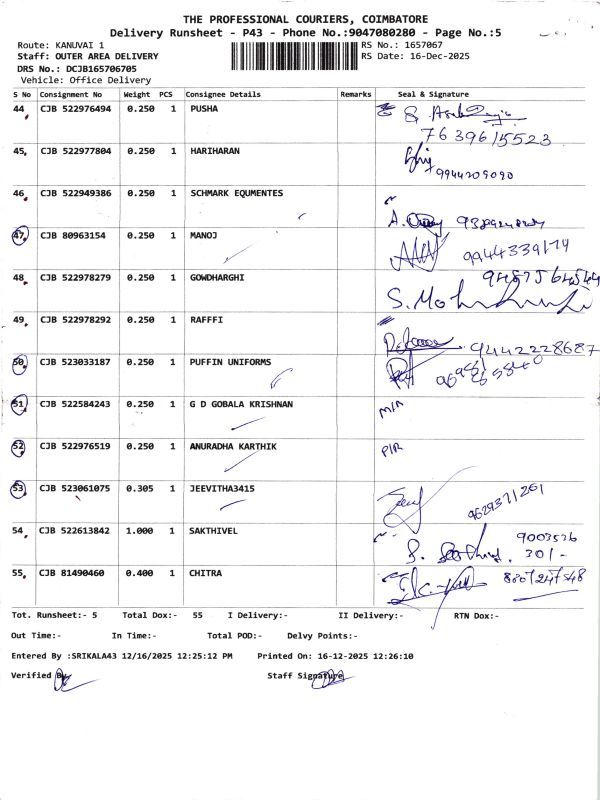 THE PROFESSIONAL COURIERS, COIMBATORE
Delivery Runsheet - P43 - Phone No.:9047080280 - Page No.:5
Route: KANUVAI 1 RS No.: 1657067
Staff: OUTER AREA DELIVERY RS Date: 16-Dec-2025
DRS No.: DCJB165706705
Vehicle: Office Delivery
S No Consignment No Weight PCS Consignee Details Remarks Seal & Signature
44 CJB 522976494 0.250 1 PUSHA
7639615523
45 CJB 522977804 0.250 1 HARIHARAN
9944209090
46 CJB 522949386 0.250 1 SCHMARK EQUMENTES
47 CJB 80963154 0.250 1 MANOJ
9944339174
48 CJB 522978279 0.250 1 GOWDHARGHI
S. Moh
49 CJB 522978292 0.250 1 RAFFFI
9442228687
50 CJB 523033187 0.250 1 PUFFIN UNIFORMS
51 CJB 522584243 0.250 1 G D GOBALA KRISHNAN
52 CJB 522976519 0.250 1 ANURADHA KARTHIK P/R
53 CJB 523061075 0.305 1 JEEVITHA3415
9629371261
54 CJB 522613842 1.000 1 SAKTHIVEL 9003526
301-
55 CJB 81490460 0.400 1 CHITRA
Tot. Runsheet:- 5 Total Dox:- 55 I Delivery:- II Delivery:- RTN Dox:-
Out Time:- In Time:- Total POD:- Delvy Points:-
Entered By :SRIKALA43 12/16/2025 12:25:12 PM Printed On: 16-12-2025 12:26:10
Verified By Staff Signature